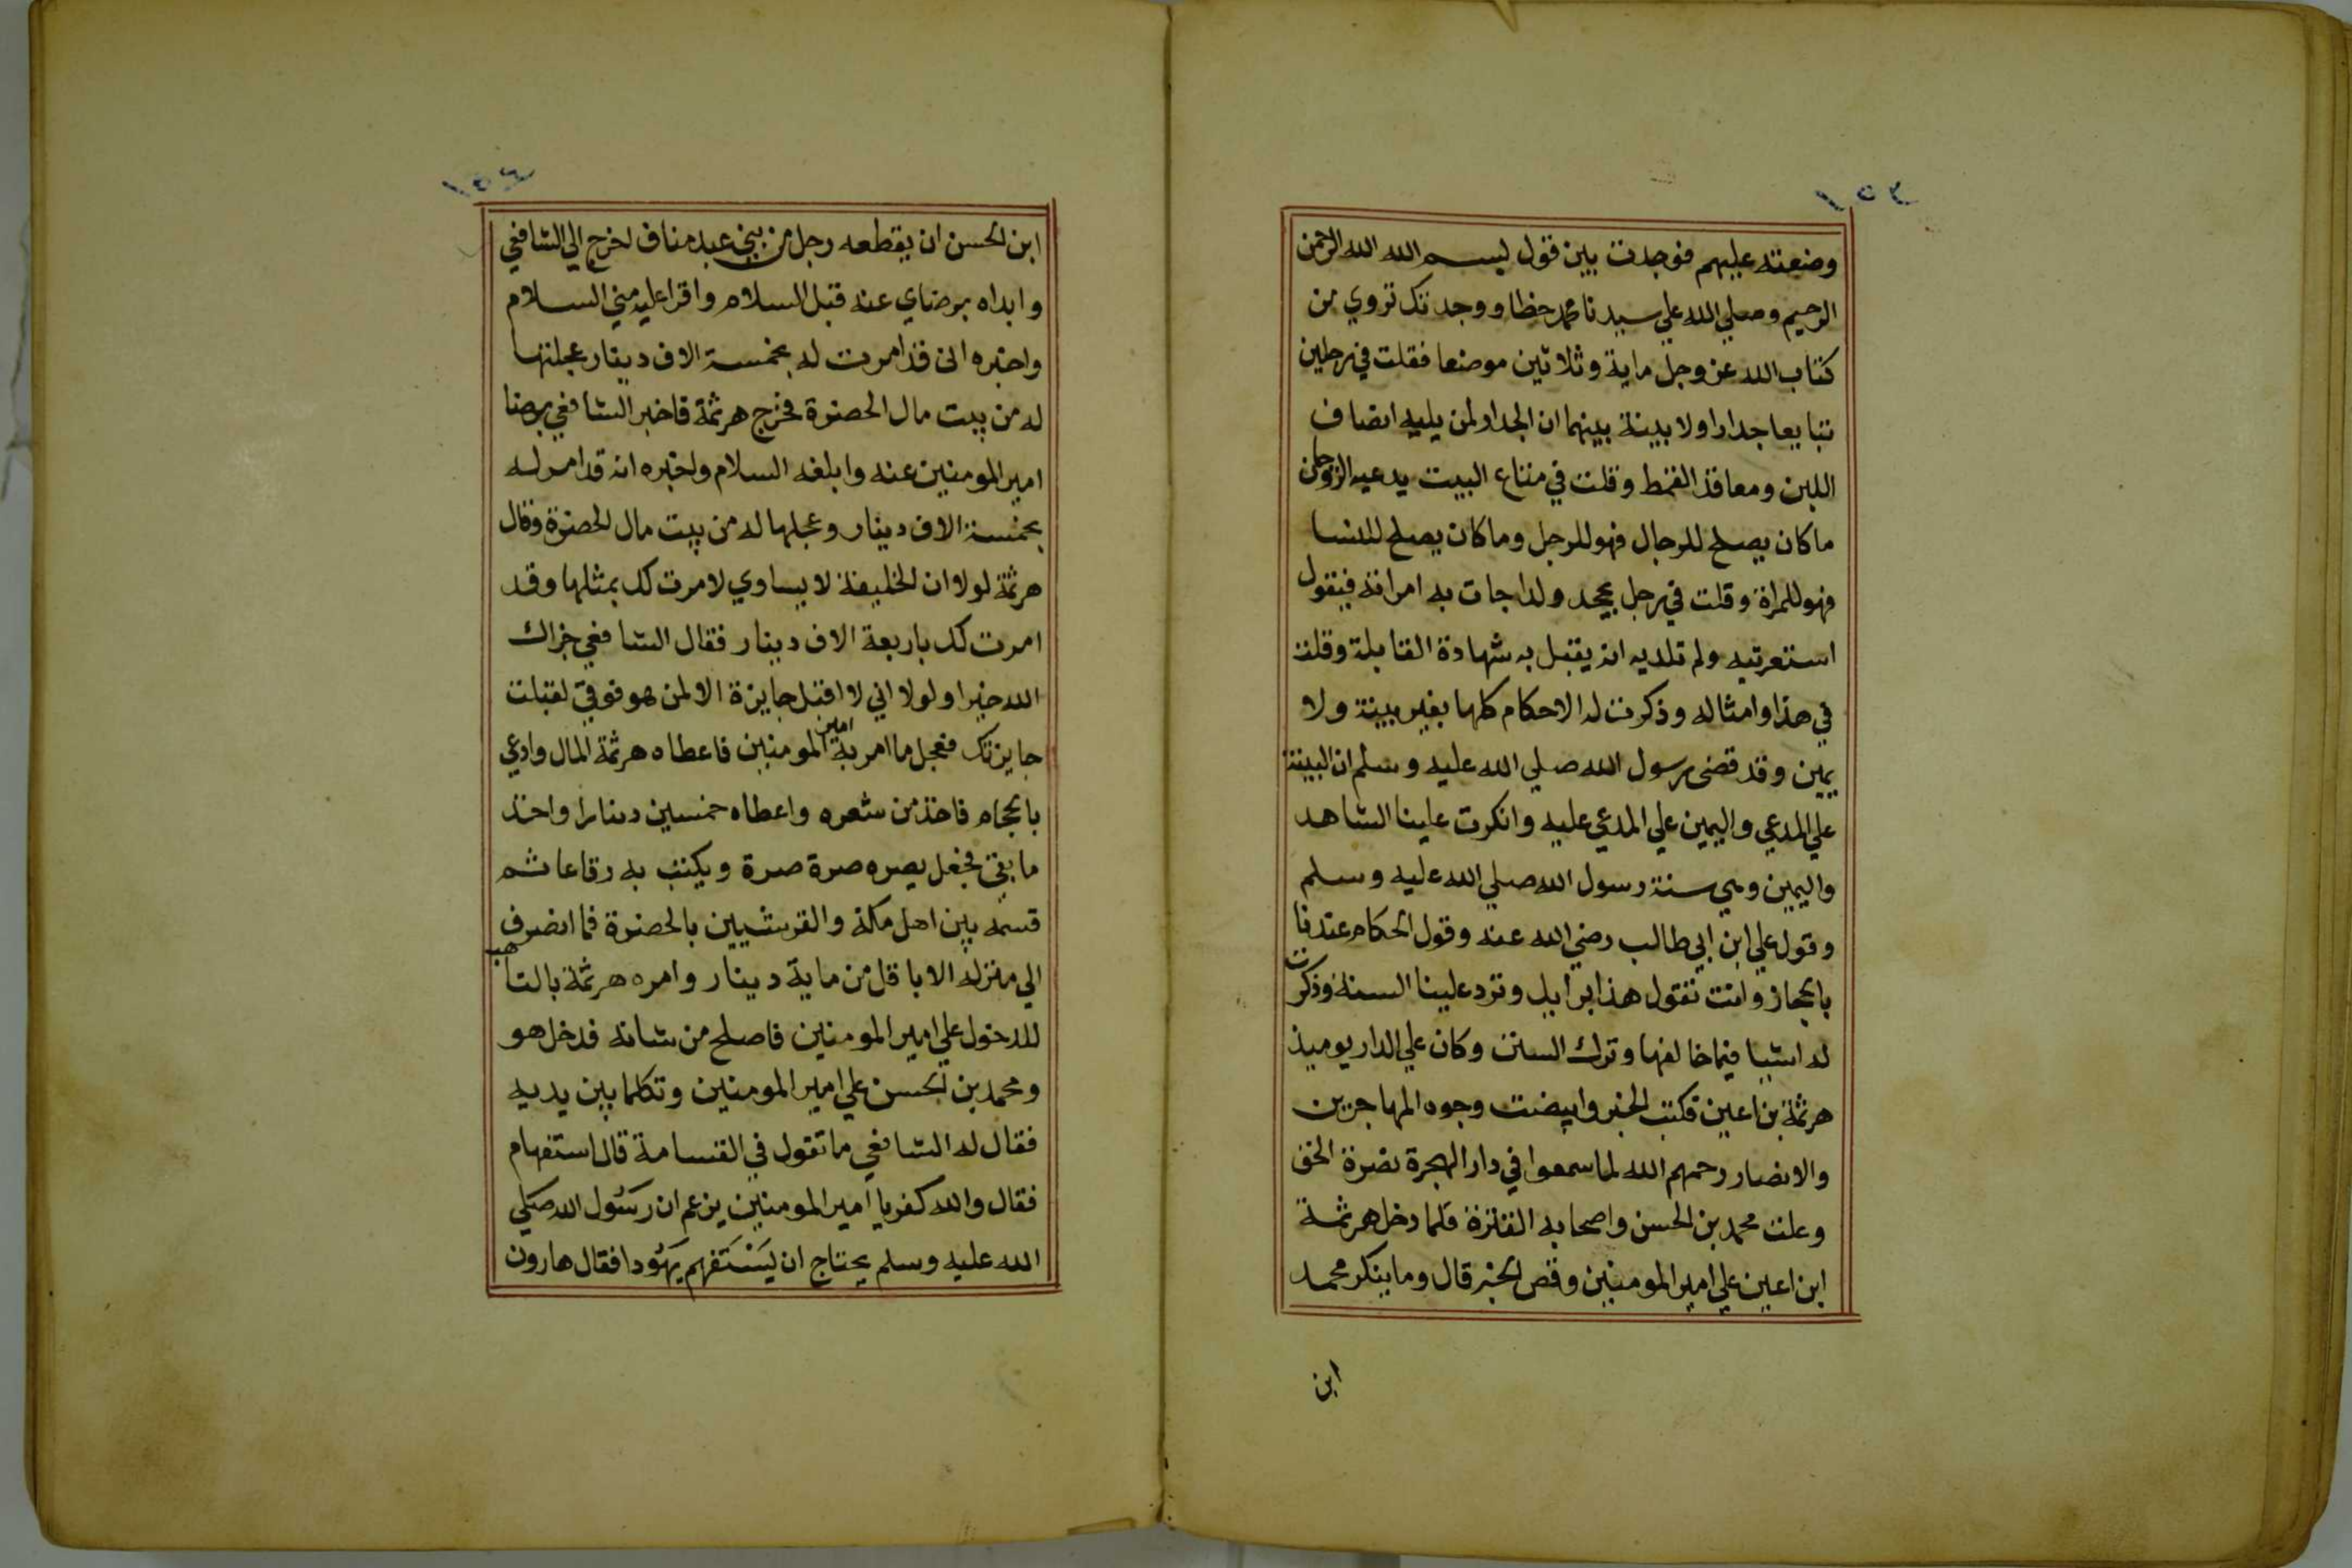 ١٥٣
وضعته عليهم فوجدت بين قول بسم الله الله الرحمن
الرحيم وصلي الله علي سيدنا محمد خطا ووجدتك تروي من
كتاب الله عز وجل ماية وثلاثين موضعا فقلت في رجلين
تبايعا جدارا ولا بينة بينهما ان الجدار لمن يليه انصاف
اللبن ومعاقد القمط وقلت في متاع البيت يدعيه الزوجان
ما كان يصلح للرجال فهو للرجل وما كان يصلح للنسا
فهو للمراة وقلت في رجل يجحد ولدا جات به امراته فيقول
استعرتيه ولم تلديه انه يقبل به شهادة القابلة وقلت
في هذا وامثاله وذكرت له الاحكام كلها بغير بينة ولا
يمين وقد قضى رسول الله صلي الله عليه وسلم ان البينة
علي المدعي واليمين علي المدعي عليه وانكرت علينا الشاهد
واليمين وهي سنة رسول الله صلي الله عليه وسلم
وقول علي ابن ابي طالب رضي الله عنه وقول الحكام عندنا
بالحجاز وانت تقول هذا برايك وترد علينا السنة وذكرت
له اشيا فيما خالفها وترك السنن وكان علي الدار يوميذ
هرثمة بن اعين فكتب الخبر وابيضت وجوه المهاجرين
والانصار رحمهم الله لما سمعوا في دار الهجرة نصرة الحق
وعلت محمد بن الحسن واصحابه القترة فلما دخل هرثمة
ابن اعين علي امير المومنين وقص الخبر قال وما ينكر محمد
ابن
١٥٤
ابن الحسن ان يقطعه رجل من بني عبد مناف اخرج الي الشافعي
وابداه برضاي عنه قبل السلام واقرا عليه مني السلام
واخبره اني قد امرت له بخمسة الاف دينار عجلتها
له من بيت مال الحضرة فخرج هرثمة فاخبر الشافعي برضا
امير المومنين عنه وابلغه السلام واخبره انه قد امر له
بخمسة الاف دينار وعجلها له من بيت مال الحضرة وقال
هرثمة لولا ان الخليفة لا يساوي لامرت لك بمثلها وقد
امرت لك باربعة الاف دينار فقال الشافعي جزاك
الله خيرا ولولا اني لا اقبل جايزة الا لمن هو فوقي لقبلت
جايزتك فعجل ما امر به امير المومنين فاعطاه هرثمة المال وادعي
بالحجام فاخذ من شعره واعطاه خمسين دينارا واخذ
ما بقي فجعل يصره صرة صرة ويكتب به رقاعا ثم
قسمه بين اهل مكة والقرشيين بالحضرة فما انصرف
الي منزله الا باقل من ماية دينار وامره هرثمة بالتاهب
للدخول علي امير المومنين فاصلح من شانه فدخل هو
ومحمد بن الحسن علي امير المومنين وتكلما بين يديه
فقال له الشافعي ما تقول في القسامة قال استفهام
فقال والله كفر يا امير المومنين يزعم ان رسُول الله صَلي
الله عليه وسلم يحتاج ان يَسْتَفهم يَهُودا فقال هارون